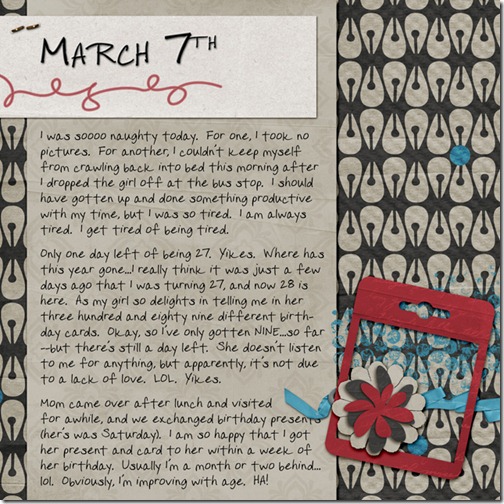 MARCH 7TH
I was soooo naughty today. For one, I took no
pictures. For another, I couldn't keep myself
from crawling back into bed this morning after
I dropped the girl off at the bus stop. I should
have gotten up and done something productive
with my time, but I was so tired. I am always
tired. I get tired of being tired.
Only one day left of being 27. Yikes. Where has
this year gone...I really think it was just a few
days ago that I was turning 27, and now 28 is
here. As my girl so delights in telling me in her
three hundred and eighty nine different birth-
day cards. Okay, so I've only gotten NINE...so far
--but there's still a day left. She doesn't listen
to me for anything, but apparently, it's not due
to a lack of love. LOL. Yikes.
Mom came over after lunch and visited
for awhile, and we exchanged birthday presents
(her's was Saturday). I am so happy that I got
her present and card to her within a week of
her birthday. Usually I'm a month or two behind...
lol. Obviously, I'm improving with age. HA!